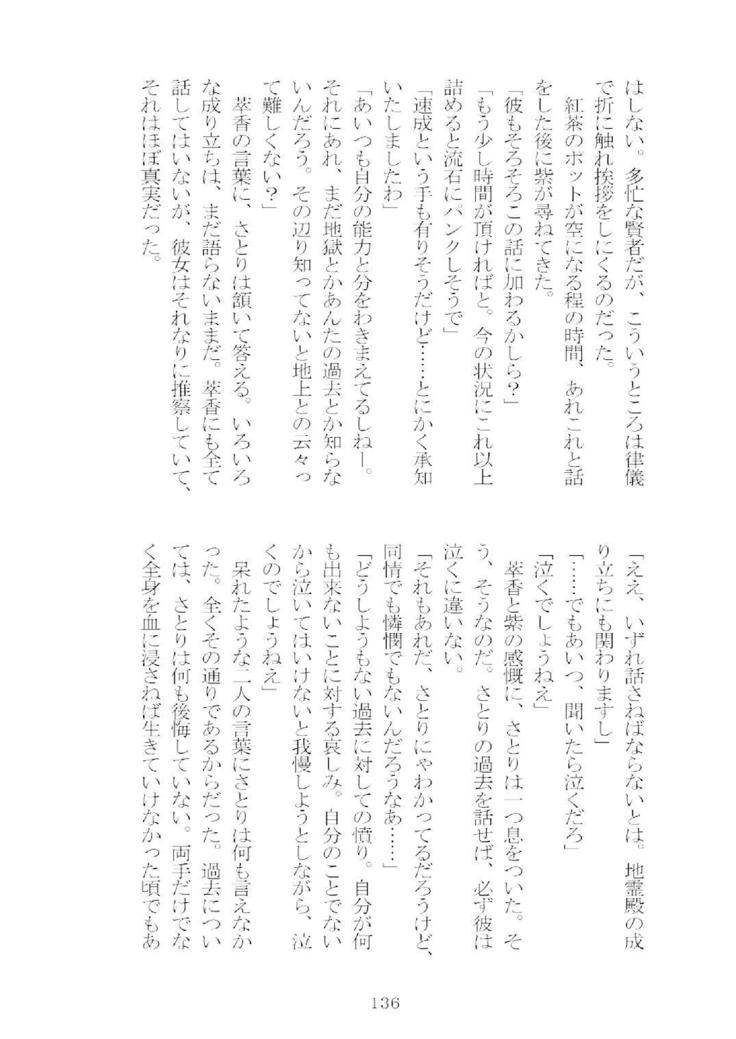 はしない。多忙な賢者だが、こういうところは律儀
で折に触れ挨拶をしにくるのだった。
　紅茶のポットが空になる程の時間、あれこれと話
をした後に紫が尋ねてきた。
「彼もそろそろこの話に加わるかしら？」
「もう少し時間が頂ければと。今の状況にこれ以上
詰めると流石にパンクしそうで」
「速成という手も有りそうだけど……とにかく承知
いたしましたわ」
「あいつも自分の能力と分をわきまえてるしねー。
それにあれ、まだ地獄とかあんたの過去とか知らな
いんだろう。その辺り知ってないと地上との云々っ
て難しくない？」
　萃香の言葉に、さとりは頷いて答える。いろいろ
な成り立ちは、まだ語らないままだ。萃香にも全て
話してはいないが、彼女はそれなりに推察していて、
それはほぼ真実だった。
「ええ、いずれ話さねばならないとは。地霊殿の成
り立ちにも関わりますし」
「……でもあいつ、聞いたら泣くだろ」
「泣くでしょうねえ」
　萃香と紫の感慨に、さとりは一つ息をついた。そ
う、そうなのだ。さとりの過去を話せば、必ず彼は
泣くに違いない。
「それもあれだ、さとりにゃわかってるだろうけど、
同情でも憐憫でもないんだろうなあ……」
「どうしようもない過去に対しての憤り。自分が何
も出来ないことに対する哀しみ。自分のことでない
から泣いてはいけないと我慢しようとしながら、泣
くのでしょうねえ」
　呆れたような二人の言葉にさとりは何も言えなか
った。全くその通りであるからだった。過去につい
ては、さとりは何も後悔していない。両手だけでな
く全身を血に浸さねば生きていけなかった頃でもあ
136